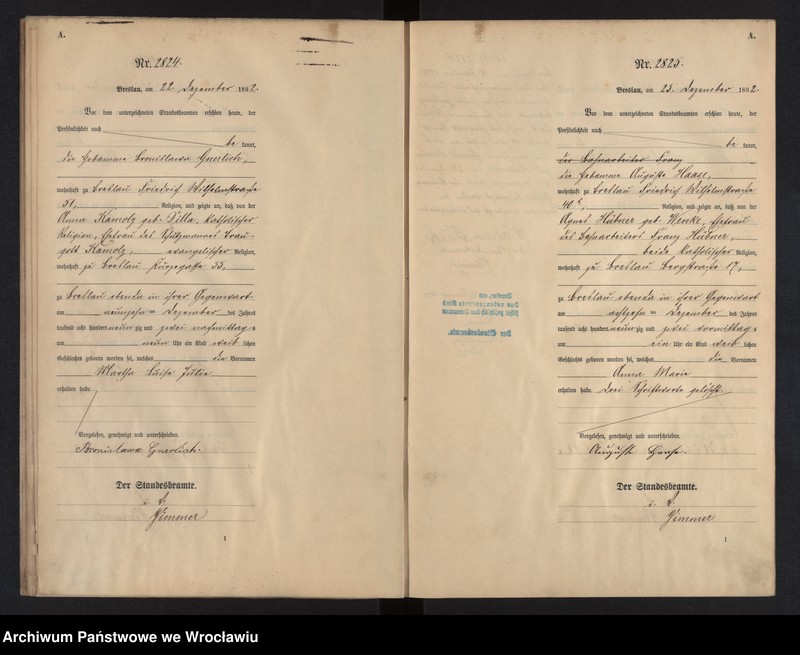 A.
Nr. 2824.
Breslau, am 22. Dezember 1892.
Vor dem unterzeichneten Standesbeamten erschien heute, der
Persönlichkeit nach
be kannt,
die Hebamme Bronislawa Gnerlich,
wohnhaft zu Breslau Friedrich Wilhelmstraße
51, Religion, und zeigte an, daß von der
Anna Kamolz geb. Dilla, katholischer
Religion, Ehefrau des Schutzmannes Trau-
gott Kamolz, evangelischer Religion,
wohnhaft zu Breslau 33,
zu Breslau ebenda in ihrer Gegenwart
am neunzehn = Dezember des Jahres
tausend acht hundert neun zig und zwei nachmittag s
um neun Uhr ein Kind weib lichen
Geschlechts geboren worden sei, welches die Vornamen
Martha Luise Julie
erhalten habe.
Vorgelesen, genehmigt und unterschrieben.
Bronislawa Gnerlich.
Der Standesbeamte.
i. V.
Zimmer
1
A.
Nr. 2825.
Breslau, am 23. Dezember 1892.
Vor dem unterzeichneten Standesbeamten erschien heute, der
Persönlichkeit nach
be kannt,
der Bahnarbeiter Franz
die Hebamme Auguste Haase,
wohnhaft zu Breslau Friedrich Wilhelmstraße
40, Religion, und zeigte an, daß von der
Agnes Hübner geb. Wenke, Ehefrau
des Bahnarbeiters Franz Hübner,
beide katholischer Religion,
wohnhaft zu Breslau Bergstraße 17,
zu Breslau ebenda in ihrer Gegenwart
am achtzehn = Dezember des Jahres
tausend acht hundert neun zig und zwei vormittag s
um ein Uhr ein Kind weib lichen
Geschlechts geboren worden sei, welches die Vornamen
Anna Marie
erhalten habe. Drei Schriftworte gelöscht.
Vorgelesen, genehmigt und unterschrieben.
Auguste Haase.
Der Standesbeamte.
i. V.
Zimmer
1
Archiwum Państwowe we Wrocławiu